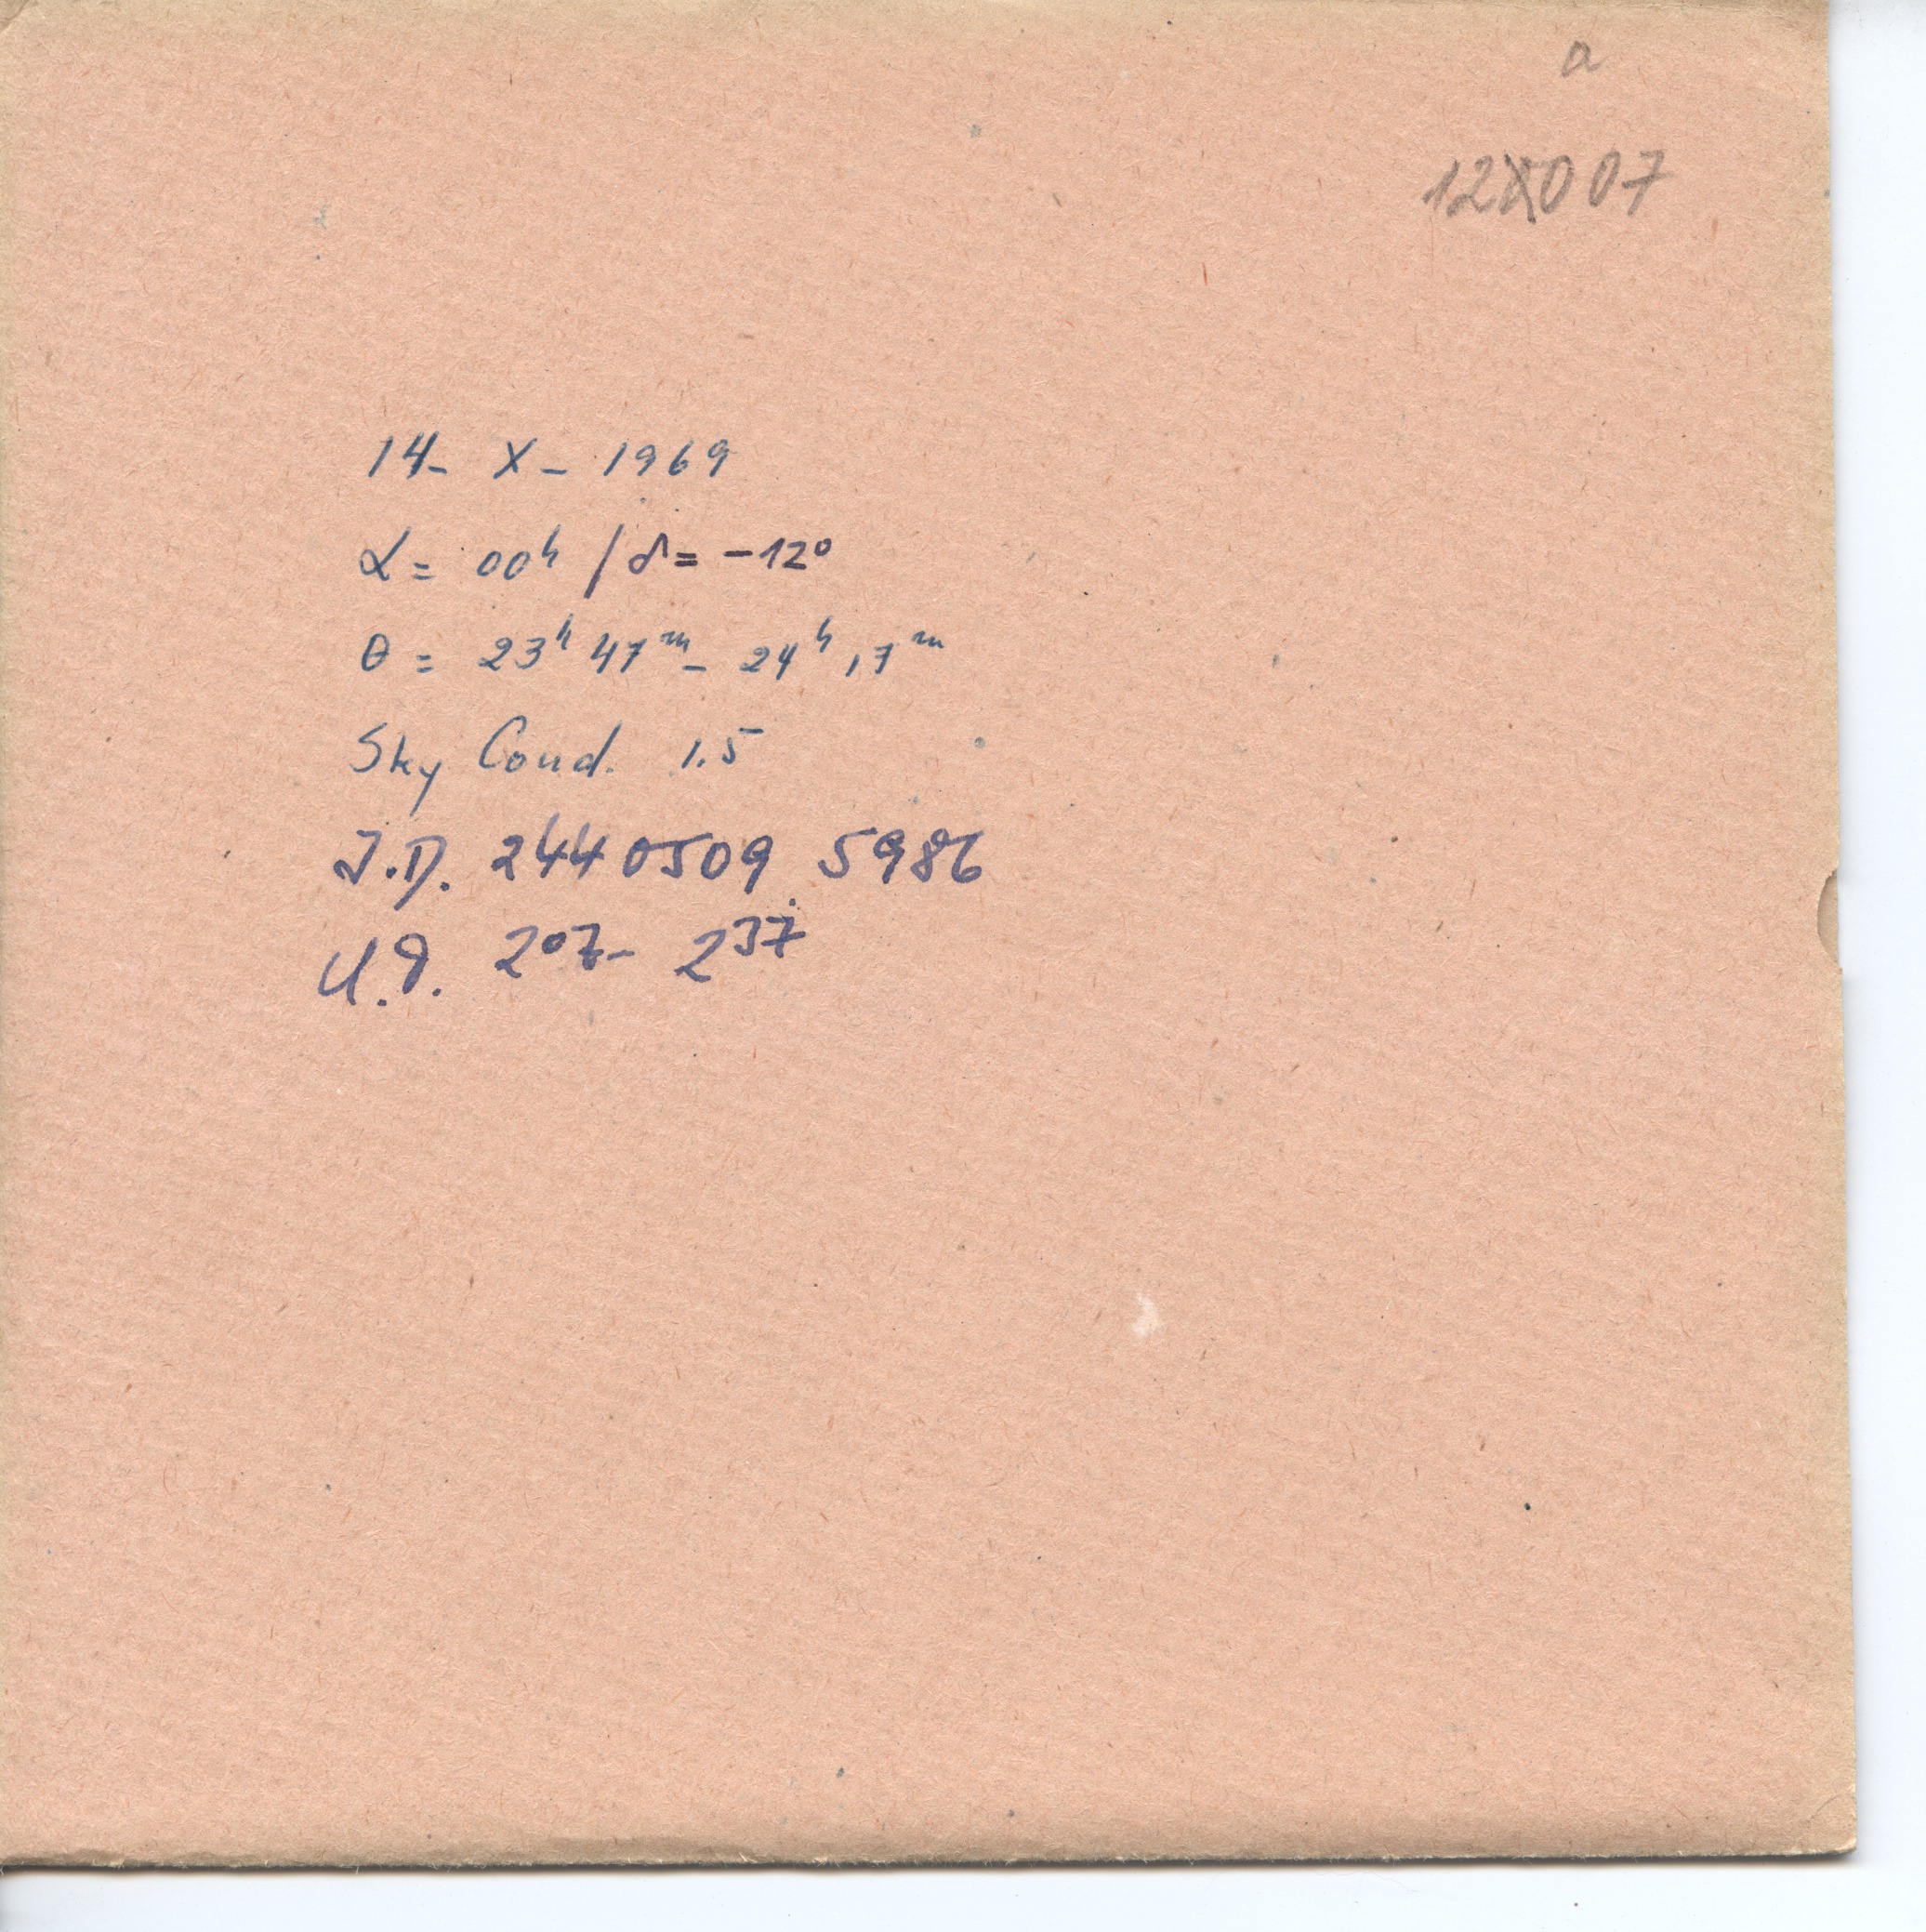 a
12X007
14- X- 1969
α = 00ʰ / δ = -12°
θ = 23ʰ 47ᵐ - 24ʰ 17ᵐ
Sky Cond. 1.5
J.D. 2440509.5986
U.T. 2⁰⁷- 2³⁷